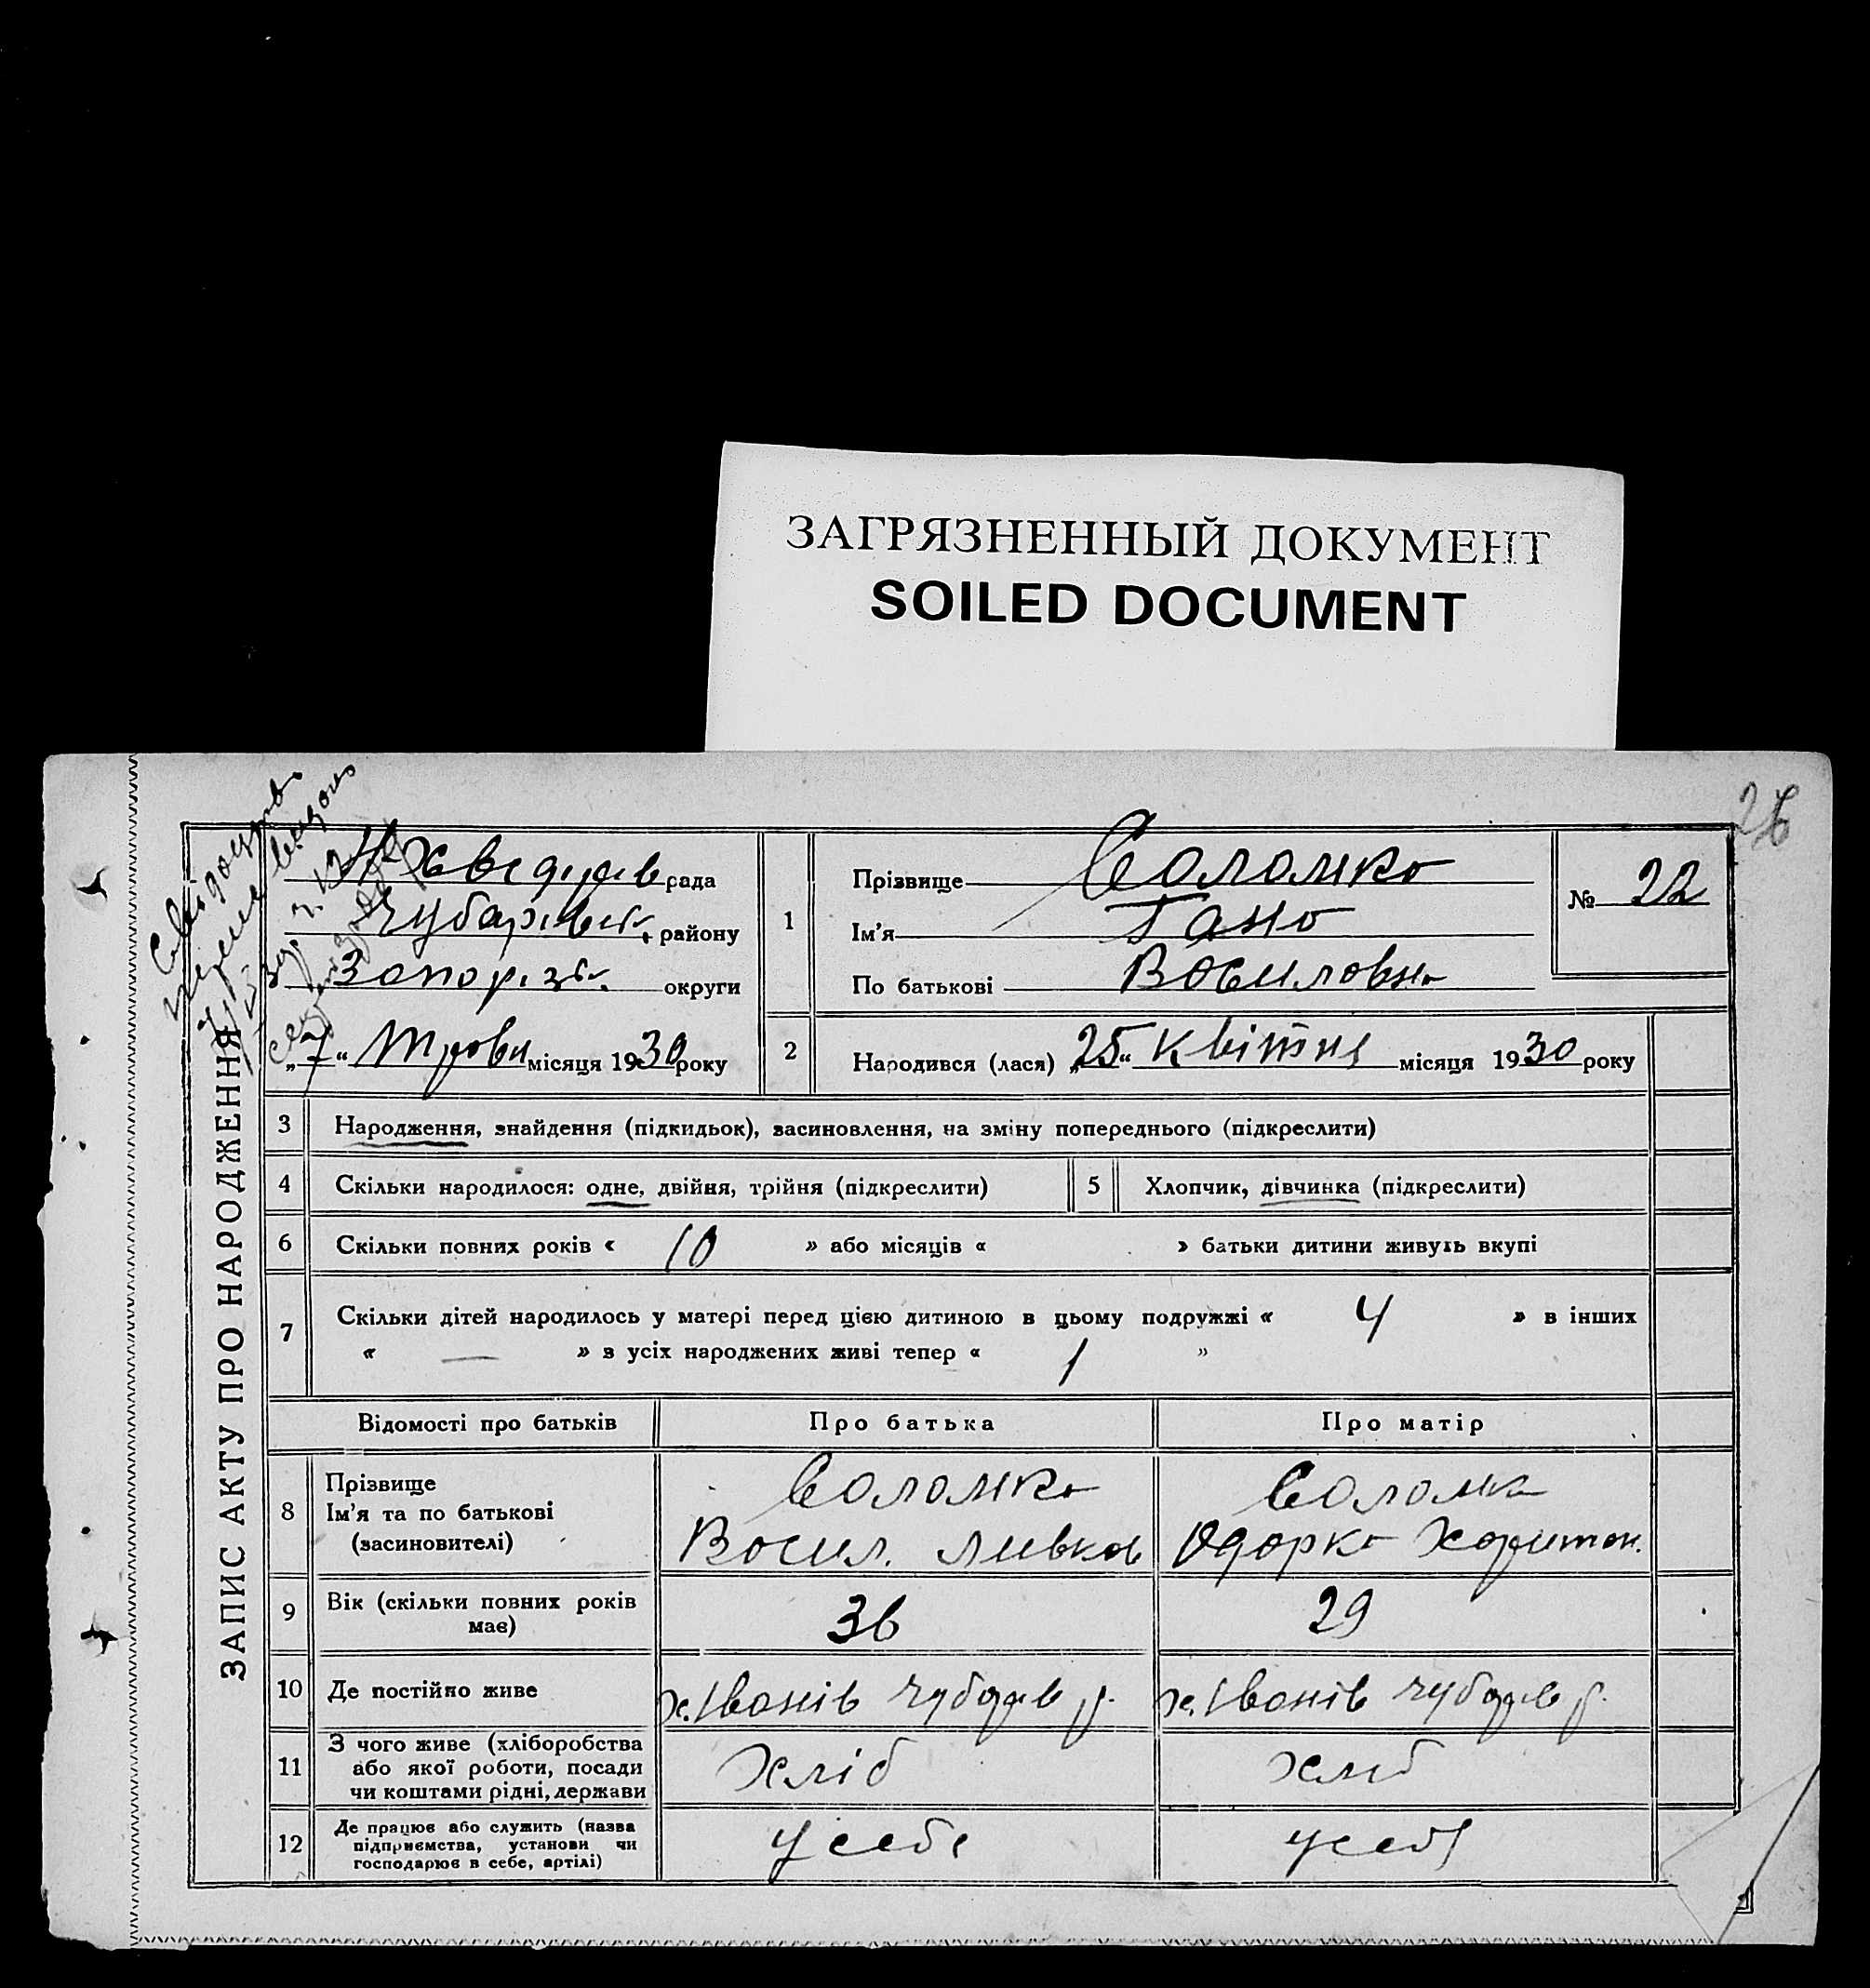 ЗАГРЯЗНЕННЫЙ ДОКУМЕНТ
SOILED DOCUMENT
26
ЗАПИС АКТУ ПРО НАРОДЖЕННЯ
рада
Чубарівськ. району
Запоріз. округи
„7“ Травн місяця 1930 року
1
Прізвище Соломко
Ім'я Гана
По батькові Василовна
№ 22
2
Народився (лася) „25“ Квітня місяця 1930 року
3 Народження, знайдення (підкидьок), засиновлення, на зміну попереднього (підкреслити)
4 Скільки народилося: одне, двійня, трійня (підкреслити)
5 Хлопчик, дівчинка (підкреслити)
6 Скільки повних років « 10 » або місяців « » батьки дитини живуть вкупі
7 Скільки дітей народилось у матері перед цією дитиною в цьому подружжі « 4 » в інших
« — » з усіх народжених живі тепер « 1 »
Відомості про батьків Про батька Про матір
8 Прізвище
Ім'я та по батькові
(засиновителі)
Соломко
Васил. Ливков
Соломк
Одарка Харитон.
9 Вік (скільки повних років
має)
36 29
10 Де постійно живе х. Іванів Чубарів р. х. Іванів Чубарів р.
11 З чого живе (хліборобства
або якої роботи, посади
чи коштами рідні, держави
Хліб Хліб
12 Де працює або служить (назва
підприємства, установи чи
господарює в себе, артілі)
У себе у себе